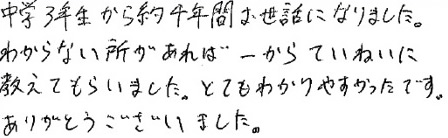 中学3年生から約4年間お世話になりました。
わからない所があれば一からていねいに
教えてもらいました。とてもわかりやすかったです。
ありがとうございました。